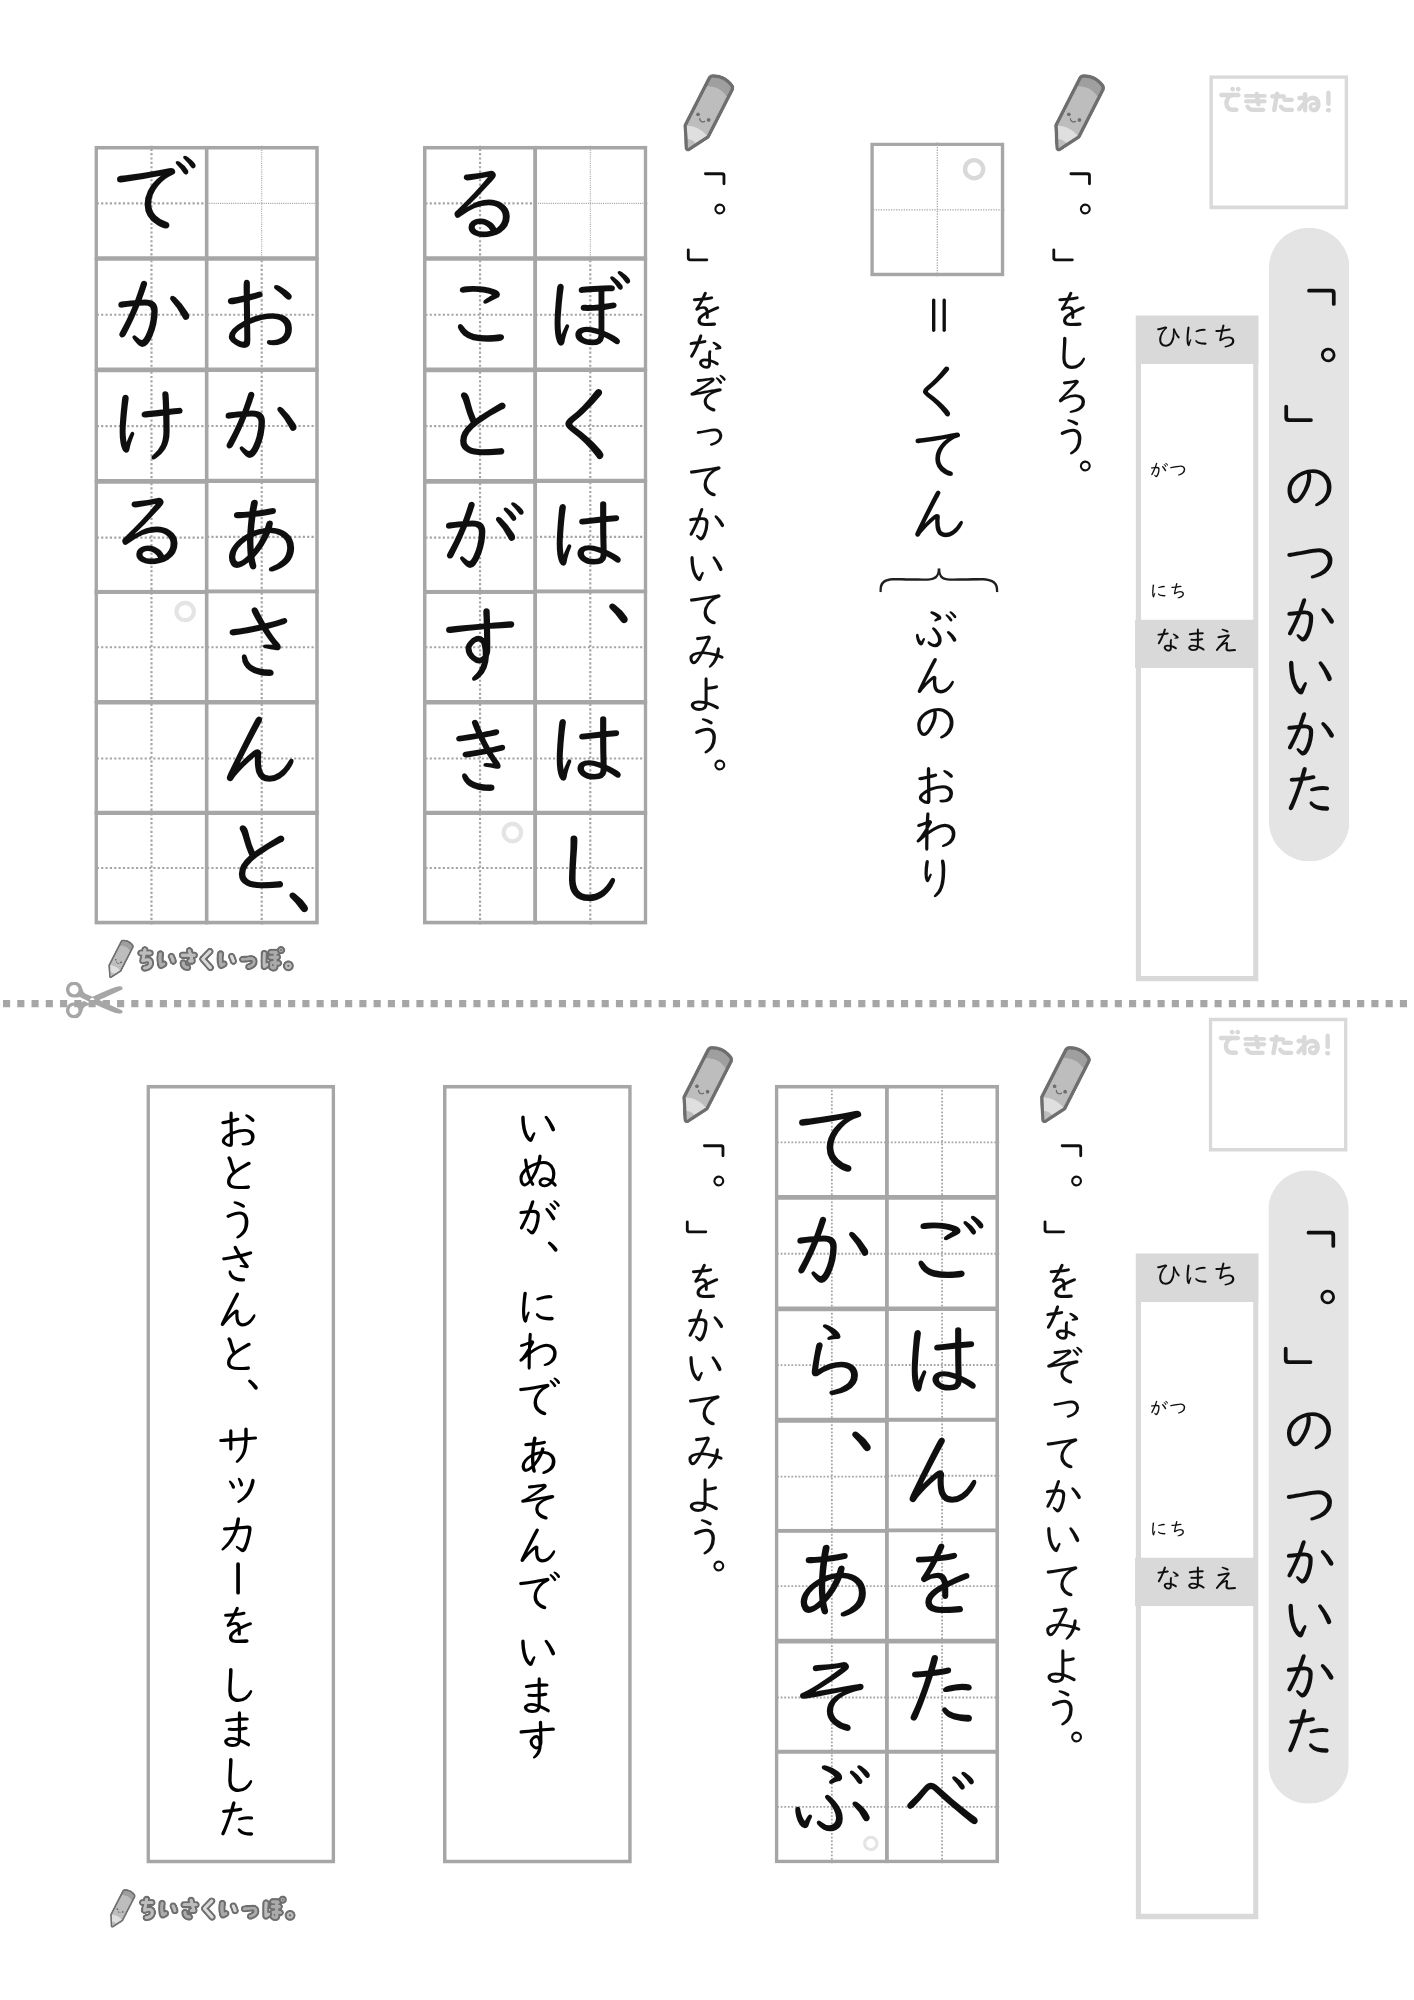 できたね！
「。」のつかいかた
ひにち
がつ
にち
なまえ
「。」をしろう。
。
＝くてん｛ぶんの おわり
「。」をなぞってかいてみよう。
ぼくは、はし
ることがすき。
おかあさんと、
でかける。
ちいさくいっぽ。
できたね！
「。」のつかいかた
ひにち
がつ
にち
なまえ
「。」をなぞってかいてみよう。
ごはんをたべ
てから、あそぶ。
「。」をかいてみよう。
いぬが、 にわで あそんで います
おとうさんと、 サッカーを しました
ちいさくいっぽ。